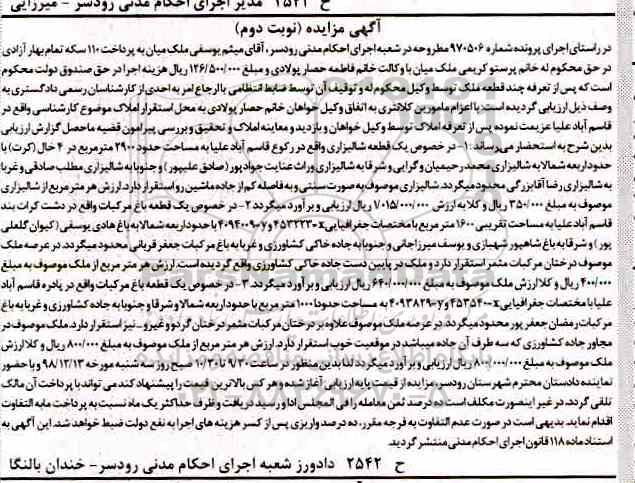 ح ۲۵۴۱ مدیر اجرای احکام مدنی رودسر - میرزایی
آگهی مزایده (نوبت دوم)
در راستای اجرای پرونده شماره ۹۷۰۵۰۶ مطروحه در شعبه اجرای احکام مدنی رودسر، آقای میثم یوسفی ملک میان به پرداخت ۱۱۰ سکه تمام بهار آزادی
در حق محکوم له خانم پرستو کریمی ملک میان با وکالت خانم فاطمه حصار پولادی و مبلغ ۱۲۶/۵۰۰/۰۰۰ ریال هزینه اجرا در حق صندوق دولت محکوم
است که پس از تعرفه چند قطعه ملک توسط وکیل محکوم له و توقیف آن توسط ضابط انتظامی با ارجاع امر به احدی از کارشناسان رسمی دادگستری به
وصف ذیل ارزیابی گردیده است: با اعزام مامورین کلانتری به اتفاق وکیل خواهان خانم حصار پولادی به محل استقرار املاک موضوع کارشناسی واقع در
قاسم آباد علیا عزیمت نموده پس از تعرفه املاک توسط وکیل خواهان و بازدید و معاینه املاک و تحقیق و بررسی پیرامون قضیه ماحصل گزارش ارزیابی
بدین شرح به استحضار می‌رساند: ۱- در خصوص یک قطعه شالیزاری واقع در رکوع قاسم آباد علیا به مساحت حدود ۲۹۰۰ مترمربع در ۴ خال (کرت) با
حدود اربعه شمالا به شالیزاری محمد رحیمیان و گرایی و شرقا به شالیزاری وراث عنایت جوادپور (صادق علیپور) و جنوبا به شالیزاری مطلب صادقی و غربا
به شالیزاری رضا آقابزرگی محدود میگردد. شالیزاری موصوف به صورت سنتی و به فاصله کم از جاده ماشین رو استقرار دارد. ارزش هر متر مربع از شالیزاری
موصوف به مبلغ ۳۵۰/۰۰۰ ریال و کلا به ارزش ۱/۰۱۵/۰۰۰/۰۰۰ ریال ارزیابی و برآورد میگردد ۲- در خصوص یک قطعه باغ مرکبات واقع در دشت کرات بند
قاسم آباد علیا به مساحت تقریبی ۱۶۰۰ متر مربع با مختصات جغرافیایی x=۴۵۳۲۲۳ و y=۴۰۹۴۰۰۹ با حدود اربعه شمالا به باغ هادی یوسفی (کیوان گلعلی
پور) و شرقا به باغ شاهپور شهبازی و یوسف میرزاجانی و جنوبا به جاده خاکی کشاورزی و غربا به باغ مرکبات جعفر قربانی محدود میگردد. در عرصه ملک
موصوف درختان مرکبات مثمر استقرار دارد و ملک در پایین دست جاده خاکی کشاورزی واقع گردیده است. ارزش هر متر مربع از ملک موصوف به مبلغ
۴۰۰/۰۰۰ ریال و کلا ارزش ملک موصوف به مبلغ ۶۴۰/۰۰۰/۰۰۰ ریال ارزیابی و برآورد میگردد. ۳- در خصوص یک قطعه باغ مرکبات واقع در پادره قاسم آباد
علیا با مختصات جغرافیایی x=۴۵۳۵۴۰ و y=۴۰۹۳۸۲۹ به مساحت حدودا ۱۰۰۰ متر مربع با حدود اربعه شمالا و شرقا و جنوبا به جاده کشاورزی و غربا به باغ
مرکبات رمضان جعفر پور محدود میگردد. در عرصه ملک موصوف علاوه بر درختان مرکبات مثمر درختان گردو و غیرو.. نیز استقرار دارد. ملک موصوف در
مجاور جاده کشاورزی که سه طرف آن جاده میباشد در موقعیت خوب استقرار دارد. ارزش هر متر مربع از ملک موصوف به مبلغ ۸۰۰/۰۰۰ ریال و کلا ارزش
ملک موصوف به مبلغ ۸۰۰/۰۰۰/۰۰۰ ریال ارزیابی و برآورد میگردد لذا بدین منظور در ساعت ۹/۳۰ تا ۱۰/۳۰ صبح روز سه شنبه مورخه ۹۸/۱۲/۱۳ و با حضور
نماینده دادستان محترم شهرستان رودسر، مزایده از قیمت پایه ارزیابی آغاز شده و هر کس بالاترین قیمت را پیشنهاد کند می تواند با پرداخت آن مالک
تلقی گردد. در غیر اینصورت مکلف است ده درصد ثمن معامله را فی المجلس ادا و رسید دریافت و ظرف حداکثر یک ماه نسبت به پرداخت مابه التفاوت
اقدام نماید بدیهی است در صورت عدم التفاوت به فرجه مقرر، ده درصد واریزی پس از کسر هزینه های اجرا به نفع دولت ضبط خواهد شد. این آگهی به
استناد ماده ۱۱۸ قانون اجرای احکام مدنی منتشر گردید.
ح ۲۵۴۲ دادورز شعبه اجرای احکام مدنی رودسر- خندان بالنگا